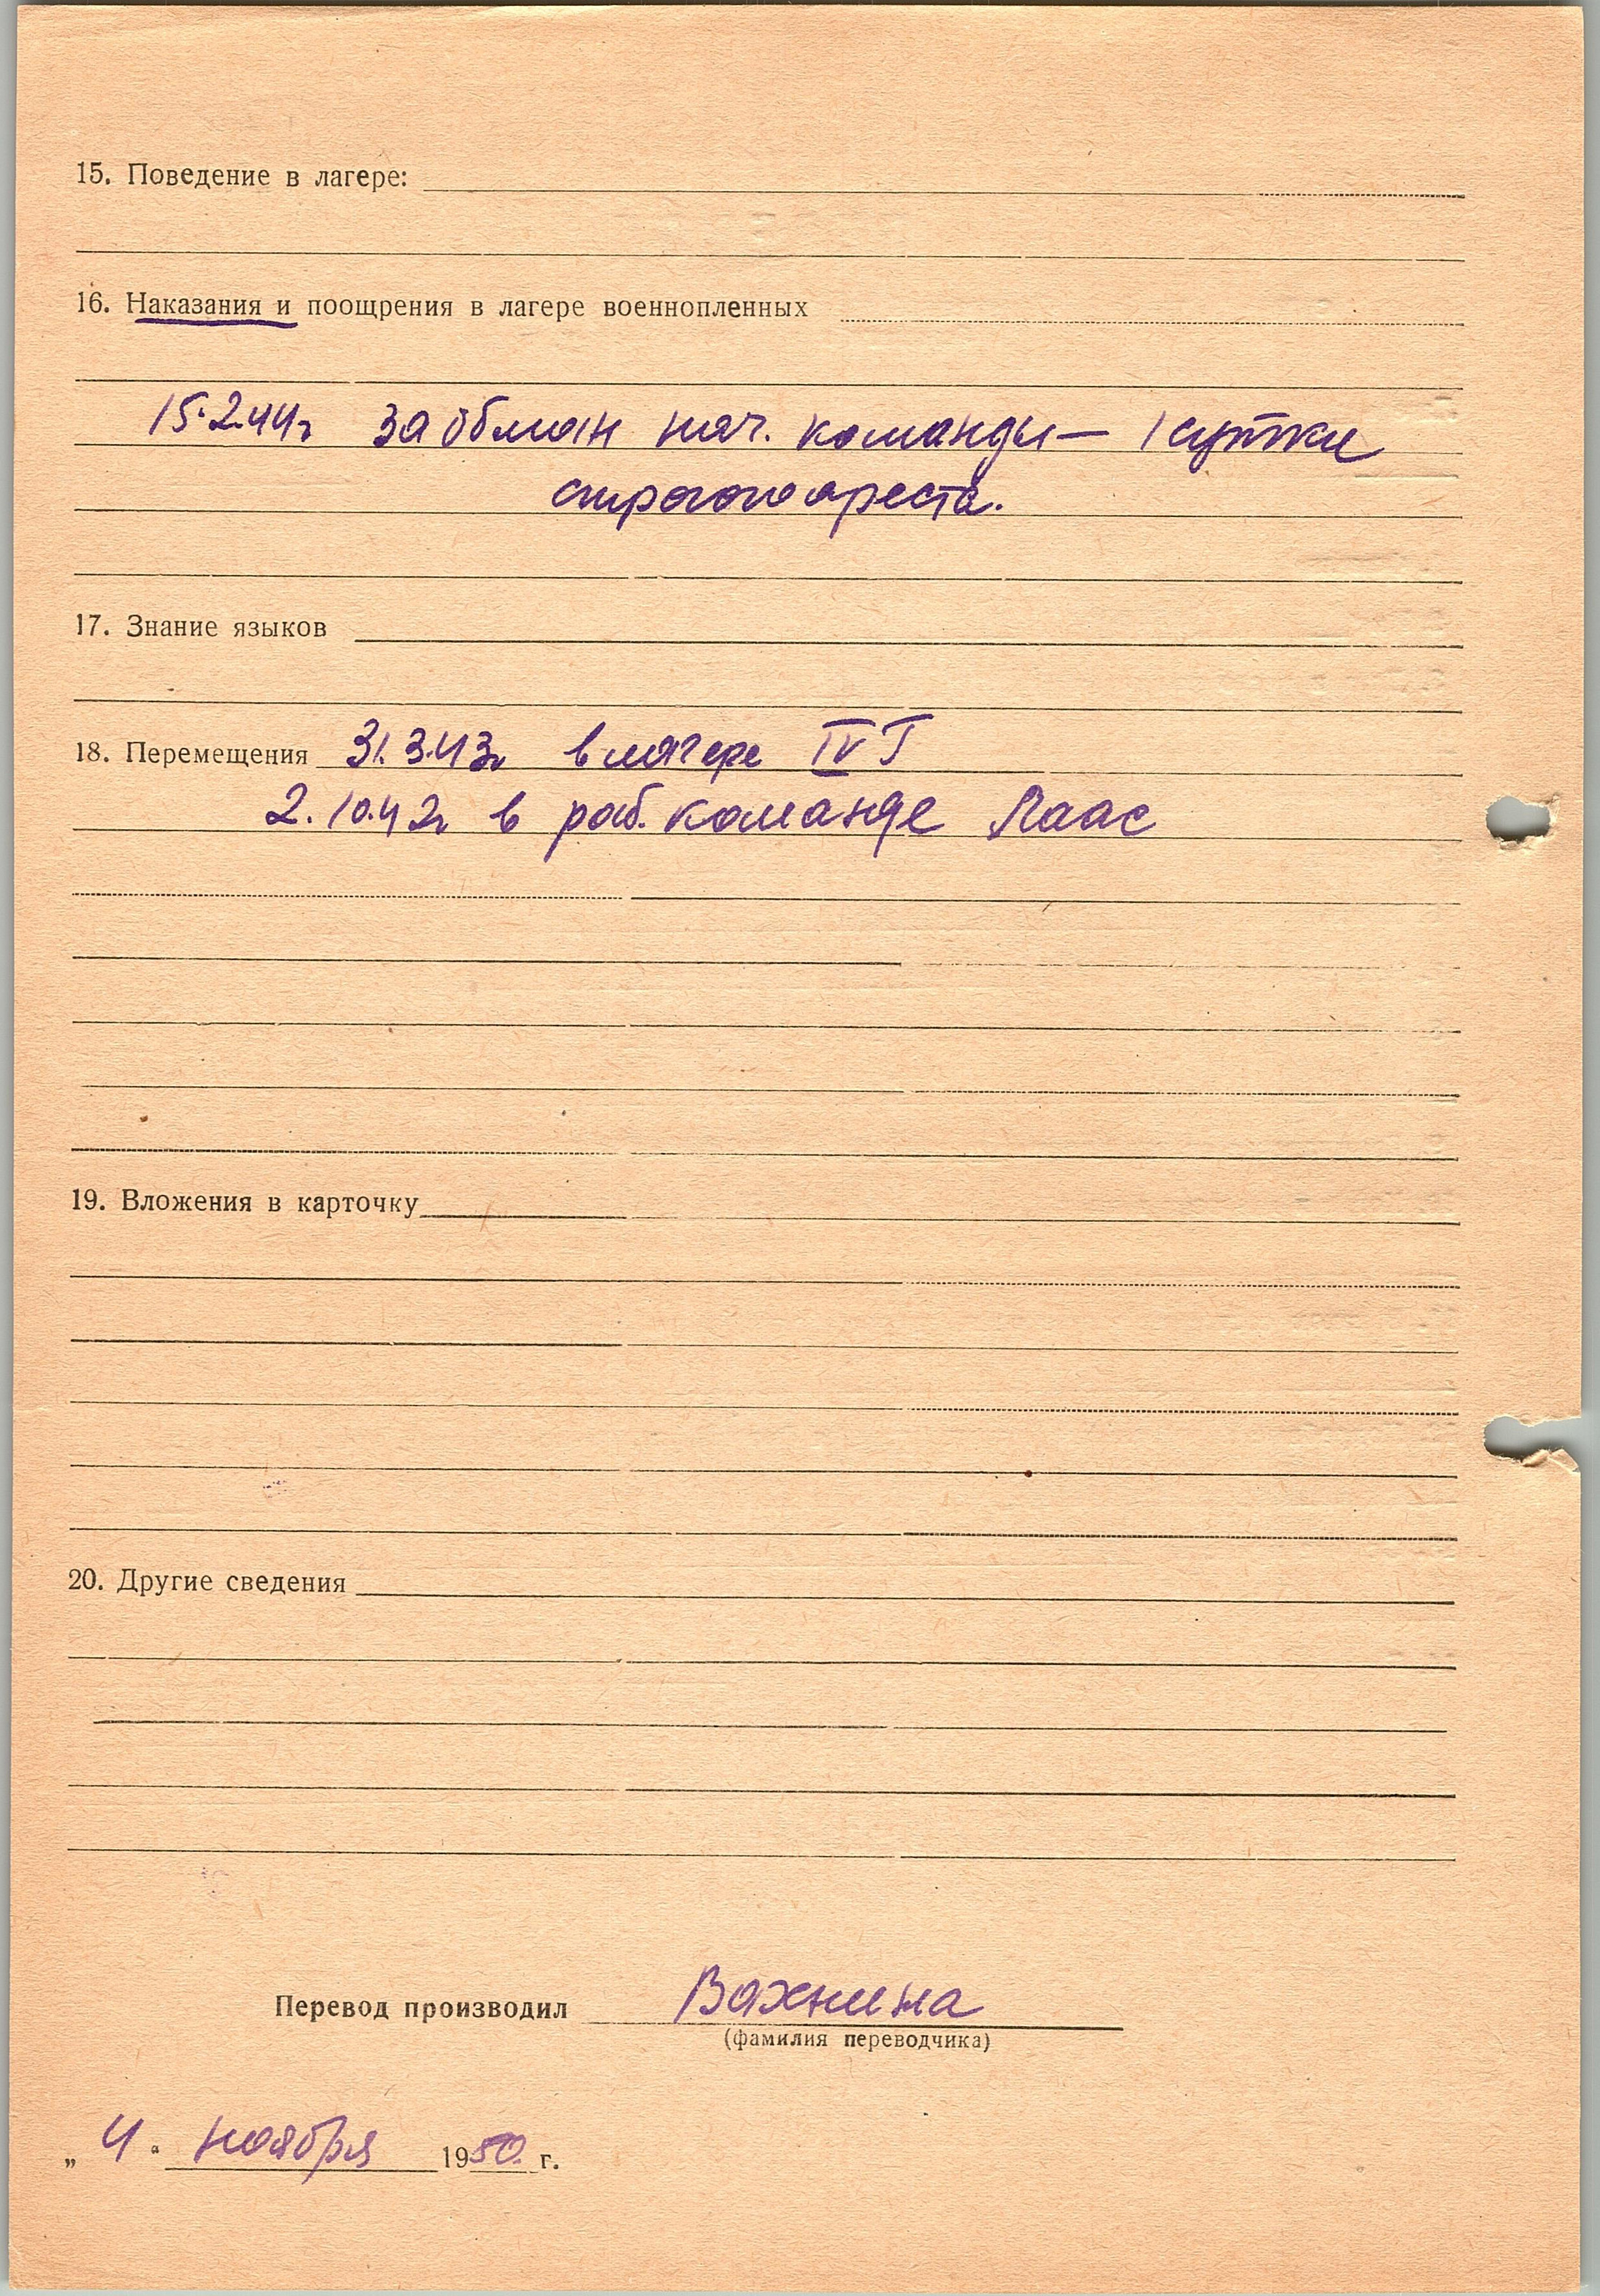 15. Поведение в лагере:
16. Наказания и поощрения в лагере военнопленных
15.2.44г за обман нач. команды — 1 сутки
строгого ареста.
17. Знание языков
18. Перемещения 31.3.43г в лагере IV F
2.10.42г в раб. команде Лаас
19. Вложения в карточку
20. Другие сведения
Перевод производил Вахнина
(фамилия переводчика)
„ 4 “ ноября 1950 г.